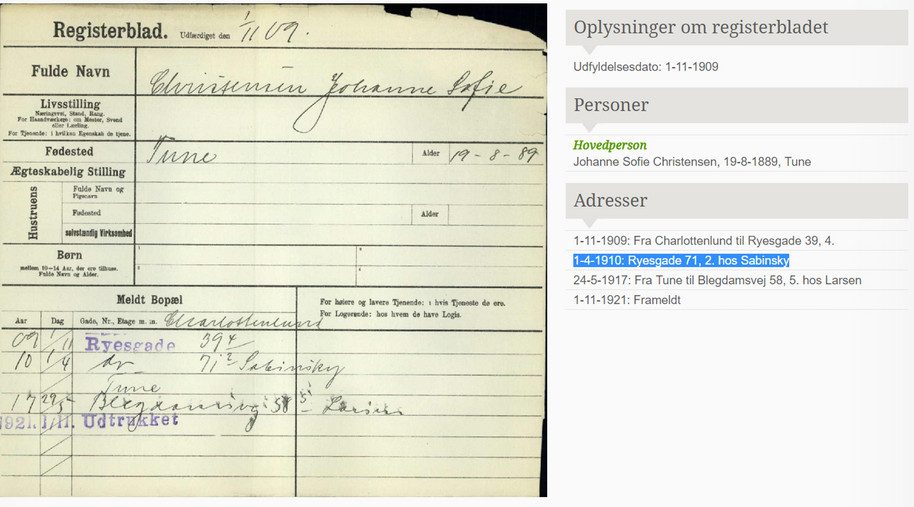 Registerblad. Udfærdiget den 1/11 09.
Fulde Navn
Christensen Johanne Sofie
Livsstilling
Næringsvei, Stand, Rang.
For Haandværkere: om Mester, Svend
eller Lærling.
For Tjenende: i hvilken Egenskab de tjene.
Fødested
Tune
Alder 19-8-89
Ægteskabelig Stilling
Hustruens
Fulde Navn og
Pigenavn
Fødested
Alder
selvstændig Virksomhed
Børn
mellem 10-14 Aar, der ere tilhuse.
Fulde Navn og Alder.
Meldt Bopæl
For høiere og lavere Tjenende: i hvis Tjeneste de ere.
For Logerende: hos hvem de have Logis.
Aar Dag Gade, Nr., Etage m. m. Charlottenlund
09 1/11 Ryesgade 39 4
10 1/4 do 71 2 Sabinsky
Tune
17 Blegdamsvej 58 5 Larsen
1921. 1/11. Udtrukket
Oplysninger om registerbladet
Udfyldelsesdato: 1-11-1909
Personer
Hovedperson
Johanne Sofie Christensen, 19-8-1889, Tune
Adresser
1-11-1909: Fra Charlottenlund til Ryesgade 39, 4.
1-4-1910: Ryesgade 71, 2. hos Sabinsky
24-5-1917: Fra Tune til Blegdamsvej 58, 5. hos Larsen
1-11-1921: Frameldt